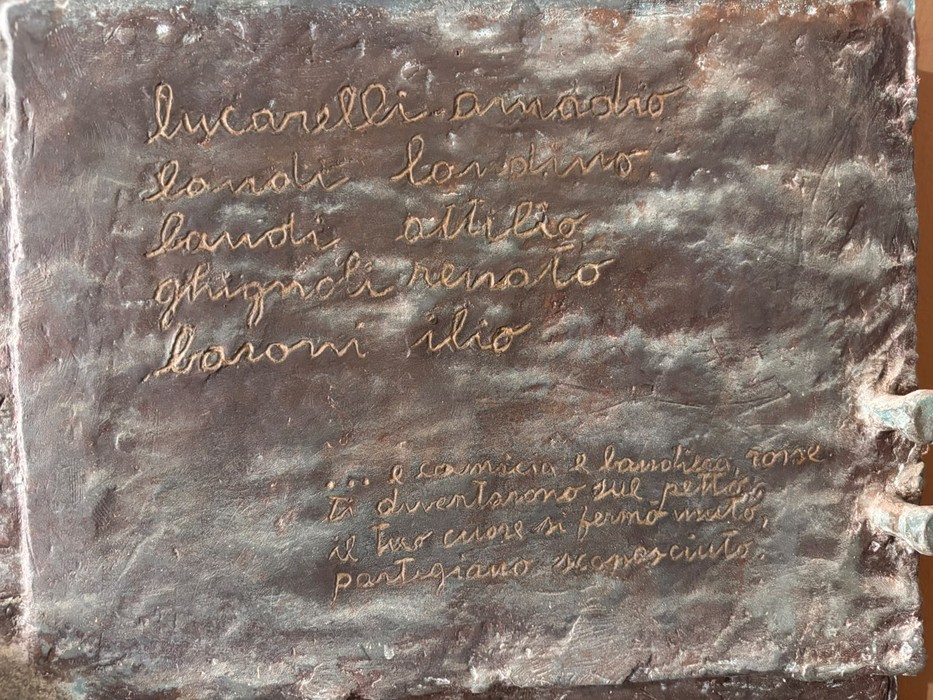 lucarelli amadio
landi landino
landi attilio
ghignoli renato
baroni ilio
... e camicia e bandiera, rosse
ti diventarono sul petto,
il tuo cuore si fermò muto,
partigiano sconosciuto.